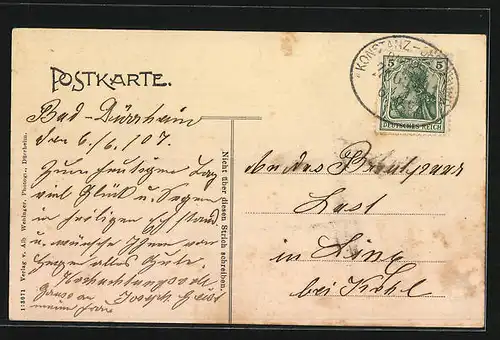 POSTKARTE.
KONSTANZ
5 5
DEUTSCHES REICH
Bad-Dürrheim
den 6./6. 07.
Zum heutigen Tag
viel Glück u. Segen
im heiligen Ehestand
u. wünsche Ihnen von
Herzen alles Gute.
Hochachtungsvoll
Joseph
An das Brautpaar
Last
in
bei
Nicht über diesen Strich schreiben.
Verlag v. Alb. Weninger, Photogr., Dürrheim.